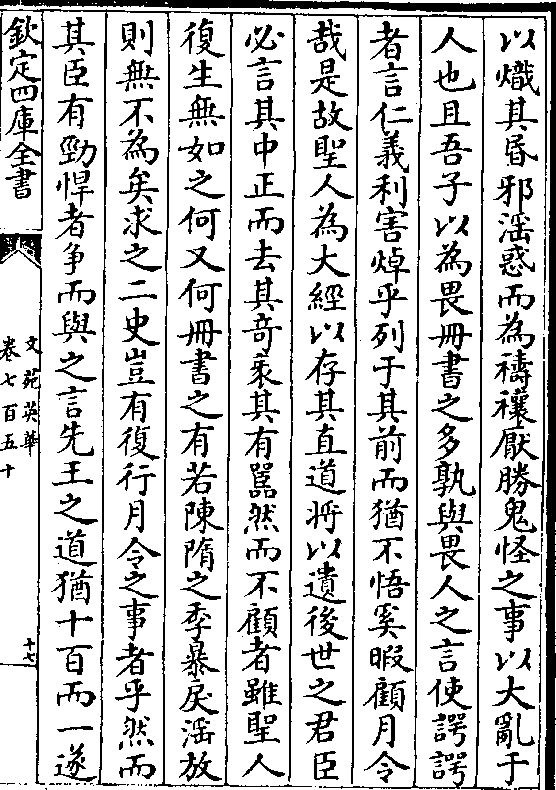 以熾其昏邪滛惑而為禱禳厭勝鬼怪之事以大亂于
人也且吾子以為畏冊書之多孰與畏人之言使諤諤
者言仁義利害焯乎列于其前而猶不悟奚暇顧月令
哉是故聖人為大經以存其直道將以遺後世之君臣
必言其中正而去其竒衺其有嚚然而不顧者雖聖人
復生無如之何又何冊書之有若陳隋之季暴戾滛放
則無不為矣求之二史豈有復行月令之事者乎然而
其臣有勁悍者争而與之言先王之道猶十百而一遂
欽定四庫全書
文苑英華
卷七百五十
十七